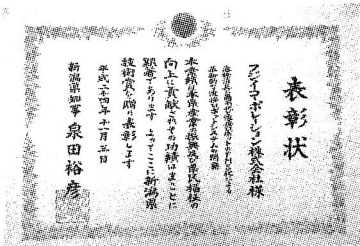 表彰状
フジイコーポレーション株式会社様
本業績は本県産業の振興及び県民福祉の
向上に貢献されその功績はまことに
顕著であります よってここに新潟県
技術賞を贈り表彰します
平成二十四年十一月五日
新潟県知事 泉田裕彦